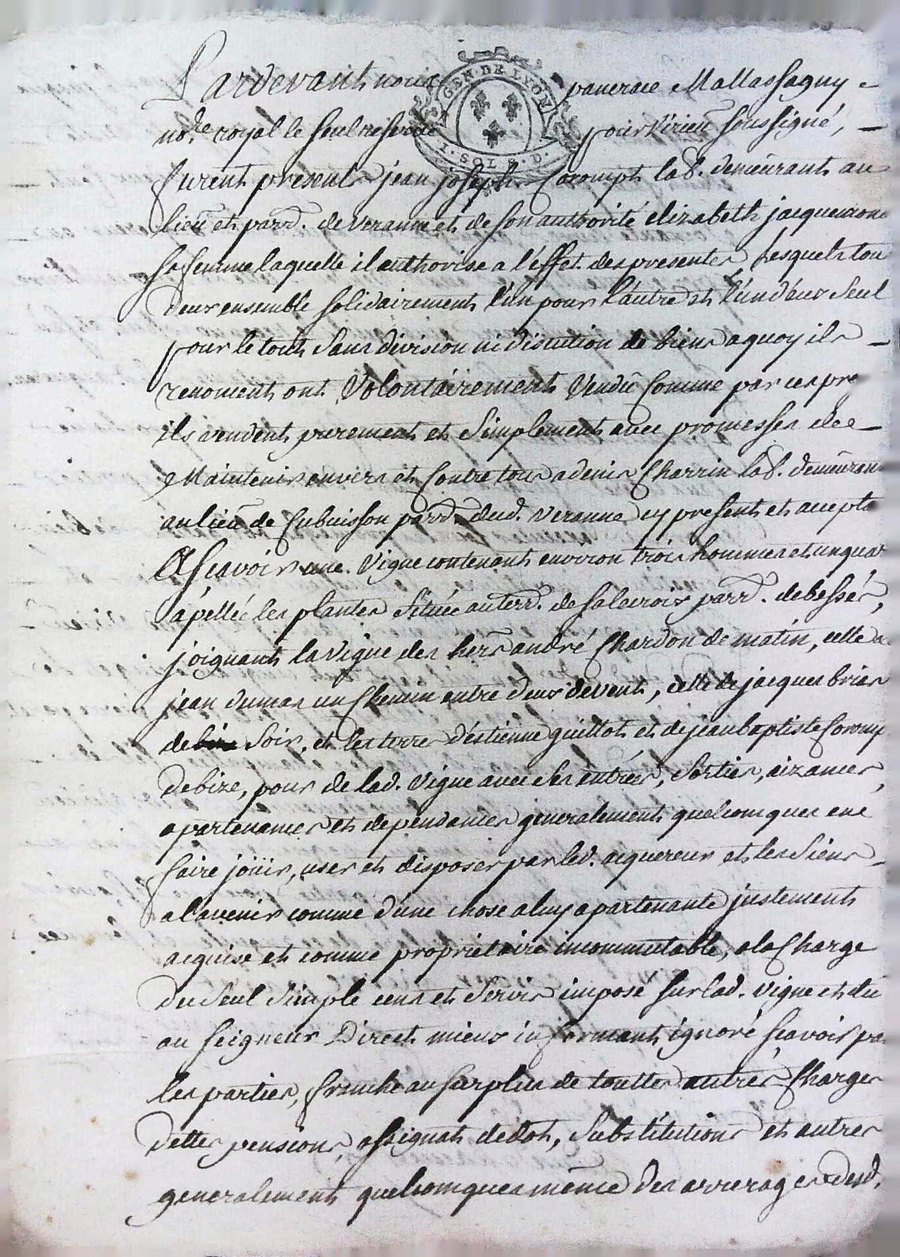 GEN. DE LYON
1. SOL 8. D.
Pardevant nous pancrace Mallassagny
no.re royal le seul reservé pour Virieu soussigné,
furent presents jean joseph Corompt lab. demeurant au
lieu et parr. de veranne et de son authorité elizabeth jacquemone
sa femme laquelle il authorise a l'effet des presentes lesquels tou
deux ensemble solidairement l'un pour l'autre et l'un d'eux seul
pour le tout sans division ni discution de biens a quoy ils
renoncent ont Volontairement Vendû Comme par ces pre
ils vendent purement et simplement avec promesse de
Maintenir envers et Contre tous a denis Charrin lab. demeuran
au lieu de Cubuisson parr. dud. veranne cy present et accepte
Ascavoir une Vigne contenant environ trois hommes et un quar
apellée les plantes Située au terr. de parr. de bessés,
joignant la vigne des hers andré Chardon de matin, celle d
jean dumas un Chemin entre deux de vent, celle de jacques brier
de soir, et les terres d'estienne guillot et de jean baptiste
de bize, pour de lad. Vigne avec ses entrées, sorties, aizances,
apartenances et dependances generalement quelconques en
faire joüir, user et disposer par led. acquereur et les siens
a l'avenir comme d'une chose a luy apartenante justement
acquise et comme proprietaire incommutable, a la Charge
du Seul Simple cens et servis imposé sur lad. Vigne et dû
au seigneur Direct mieux informant ignoré scavoir pa
les parties, franche au surplus de touttes autres Charges
dettes pensions, assignats de dot, Substitutions et autres
generalement quelconques même des arrerages desd.